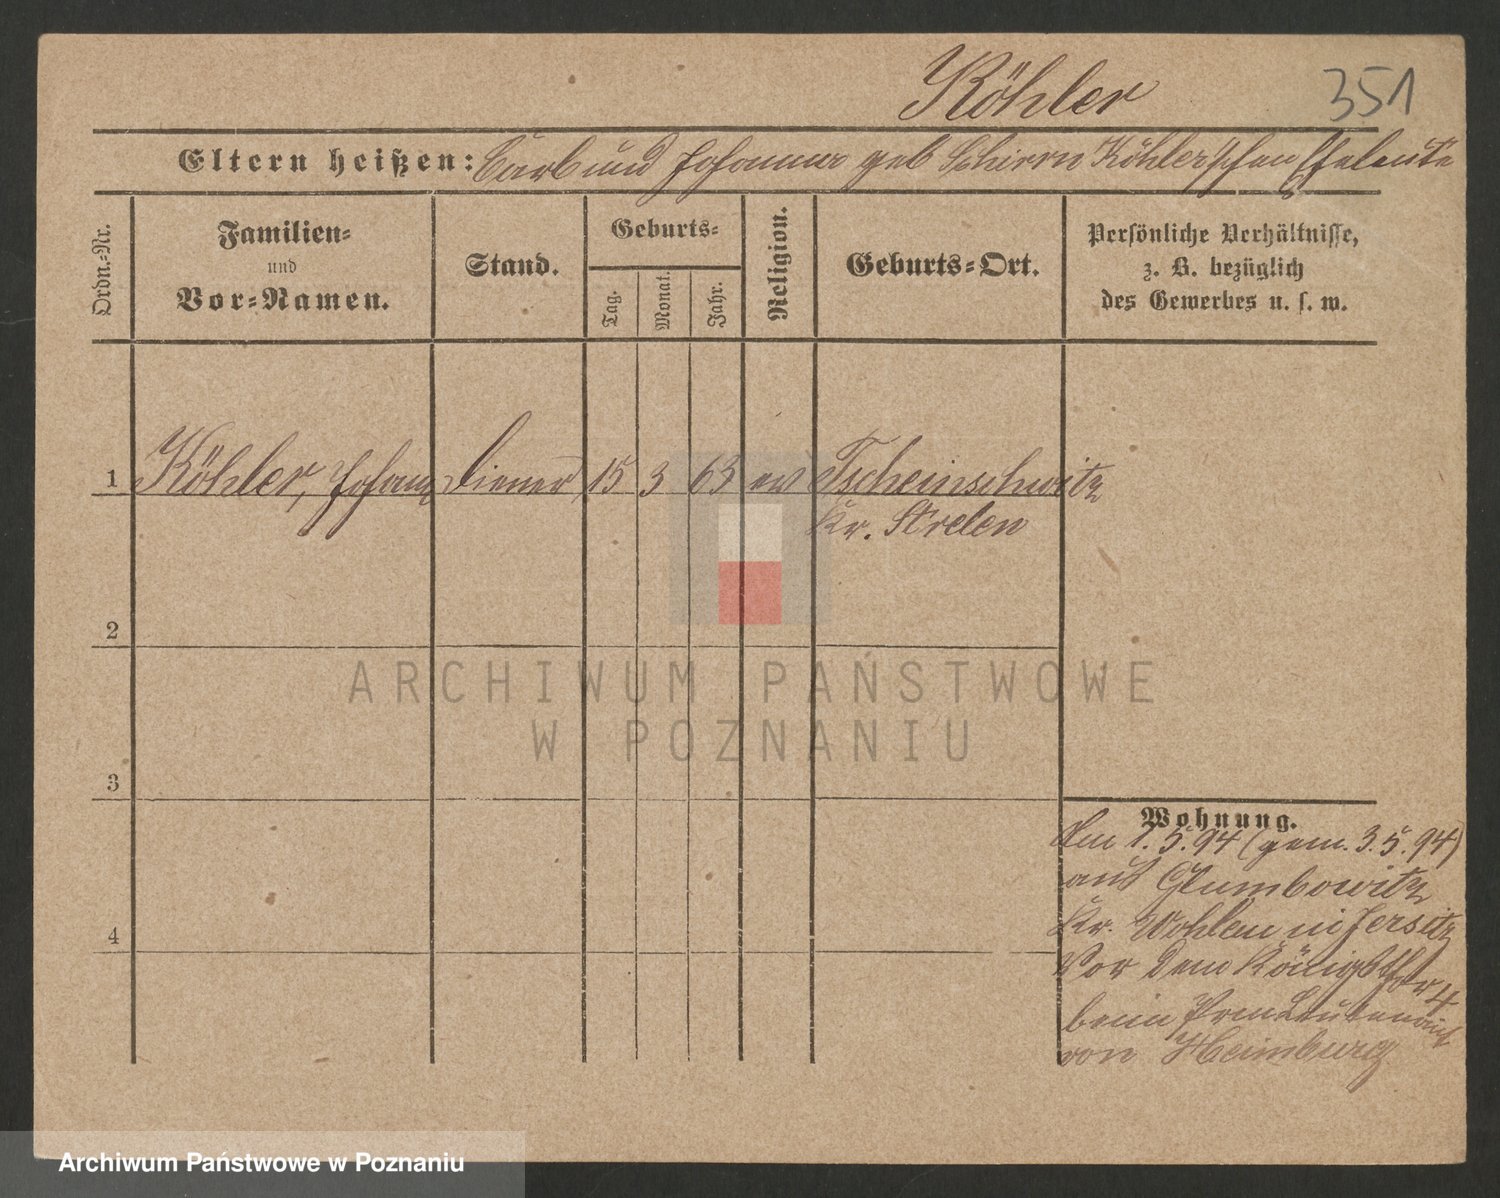 Köhler 351
Eltern heißen: Carl und Johanna geb Schirm Köhler'schen Eheleute
Ordn.-Nr.
Familien-
und
Vor-Namen.
Stand.
Geburts-
Tag.
Monat.
Jahr.
Religion.
Geburts-Ort.
Persönliche Verhältnisse,
z. B. bezüglich
des Gewerbes u. s. w.
1 Köhler, Johann Diener 15 3 63 ev Tscheinschwitz
Kr. Strelen
2
ARCHIWUM PAŃSTWOWE
W POZNANIU
3
Wohnung.
Am 1.5.94 (gem. 3.5.94)
aus Glumbowitz
Kr. Wohlau in Jersitz
Vor dem Königsthor 4
beim Prm Leutenant
von Heimburg
4
Archiwum Państwowe w Poznaniu